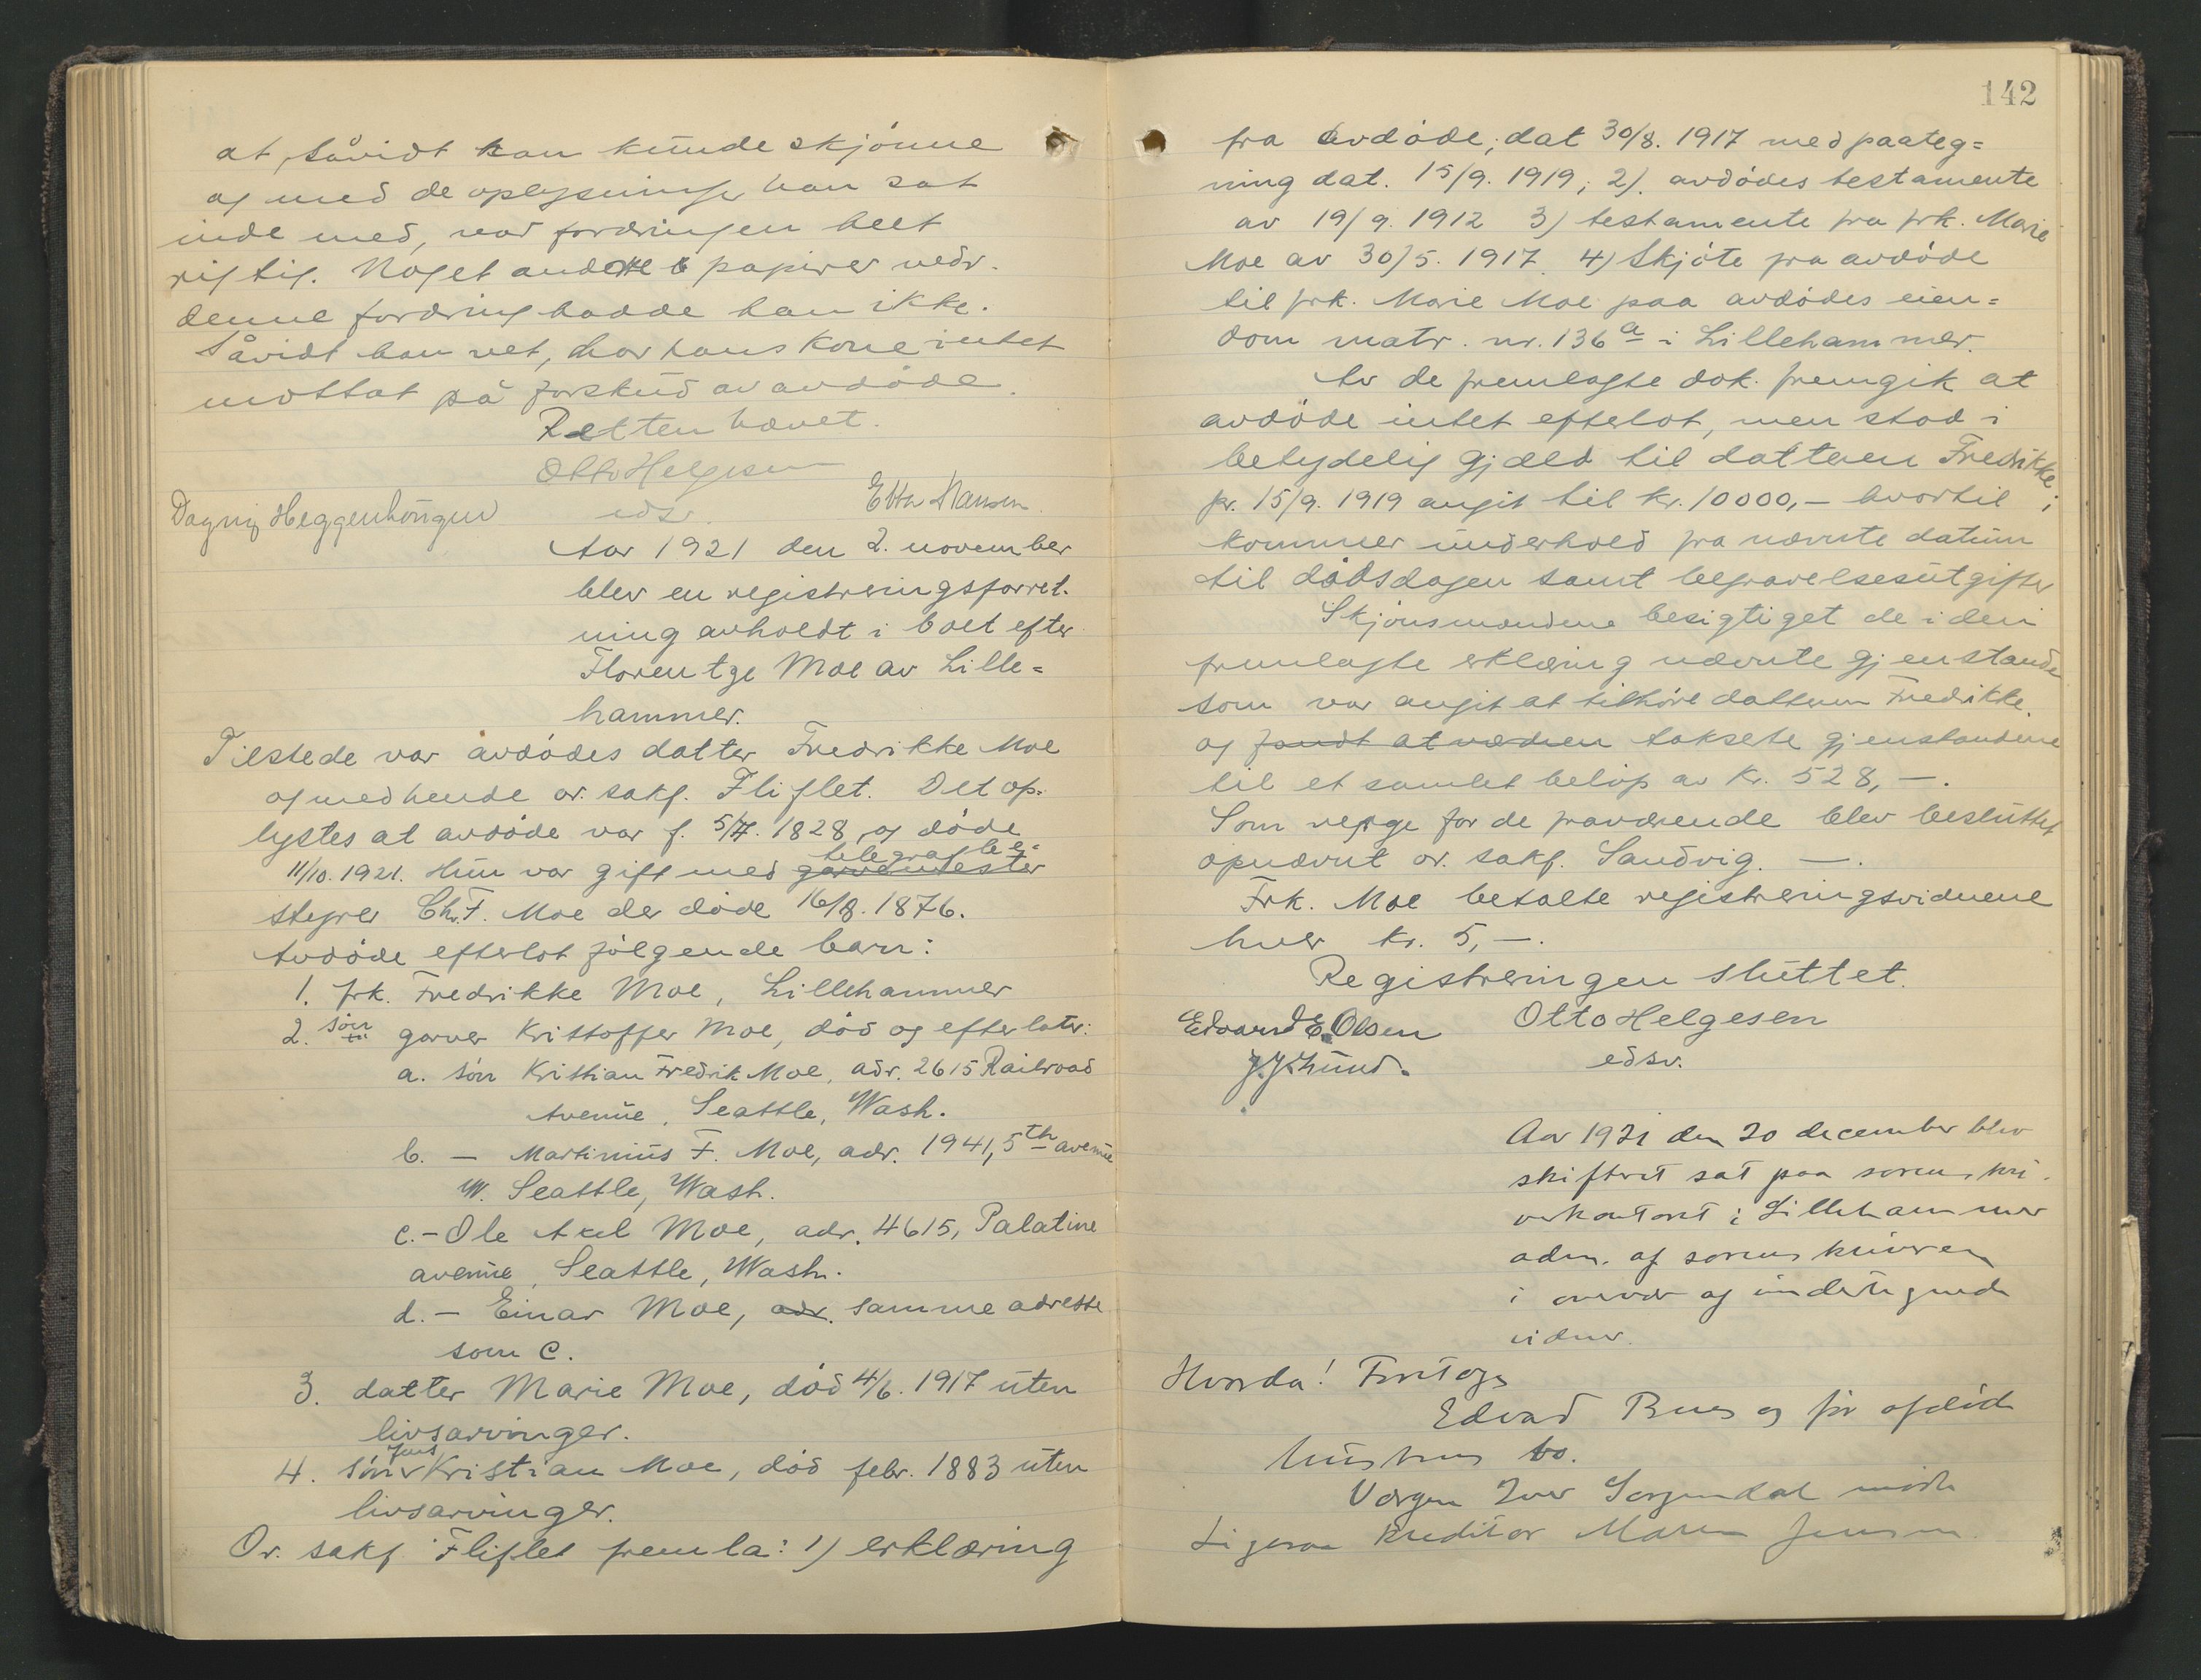 at, såvidt han kunde skjønne
og med de oplysninger han sat
inde med, var fordringen helt
rigtig. Noget andet papirer vedr.
denne fordring hadde han ikke.
Såvidt han vet, har hans kone intet
mottat på forskud av avdøde.
Retten hævet.
Otto Helgesen
edsv.
Ebba Hansen.
Dagny Heggenhougen
Aar 1921 den 2. november
blev en registreringsforret-
ning avholdt i boet efter
Florentze Moe av Lille=
hammer.
Tilstede var avdødes datter Fredrikke Moe
og med hende or. sakf. Fliflet. Det op-
lystes at avdøde var f. 5/7. 1828 og døde
11/10. 1921. Hun var gift med garvemester telegrafbe-
styrer Chr. F. Moe der døde 16/8. 1876.
Avdøde efterlot følgende barn:
1. frk. Fredrikke Moe, Lillehammer
2. søn garver Kristoffer Moe, død og efterlatr:
a. søn Kristian Fredrik Moe, adr. 2615 Railroad
Avenue, Seattle, Wash.
b. — Martinius F. Moe, adr. 1941, 5th avenue
W. Seattle, Wash.
c. - Ole Axel Moe, adr. 4615, Palatine
avenue, Seattle, Wash.
d. - Einar Moe, adr. samme adresse
som c.
3. datter Marie Moe, død 4/6. 1917 uten
livsarvinger.
4. søn Jens Kristian Moe, død febr. 1883 uten
livsarvinger.
Or. sakf. Fliflet fremla: 1) erklæring
142
fra avdøde, dat 30/8. 1917 med paateg=
ning dat. 15/9. 1919; 2). avdødes testamente
av 19/9. 1912 3) testamente fra frk. Marie
Moe av 30/5. 1917. 4) Skjøte fra avdøde
til frk. Marie Moe paa avdødes eien=
dom matr. nr. 136a i Lillehammer.
Av de fremlagte dok. fremgik at
avdøde intet efterlot, men stod i
betydelig gjæld til datteren Fredrikke;
pr. 15/9. 1919 angit til kr. 10000,- hvortil
kommer underhold fra nævnte datum
til dødsdagen samt begravelsesutgifter
Skjønsmændene besigtiget de i den
fremlagte erklæring nævnte gjenstande
som var angit at tilhøre datteren Fredrikke,
og fandt at værdien taksete gjenstandene
til et samlet beløp av kr. 528,-.
Som verge for de fraværende blev besluttet
opnævnt or. sakf. Sandvig. —.
Frk. Moe betalte registreringsvidnene
hver kr. 5,-.
Registreringen sluttet.
Edvard E. Olsen Otto Helgesen
J. J. Lund. edsv.
Aar 1921 den 20 december blev
skifteret sat paa sorenskri-
verkontoret i Lillehammer
adm. af sorenskriveren
i overvær af undertegnede
vidner.
Hvorda! Foretoges
Edvard og for afdød
hustrus bo.
Værgen Iver møtte
Ligesaa kreditor Maren Jensen